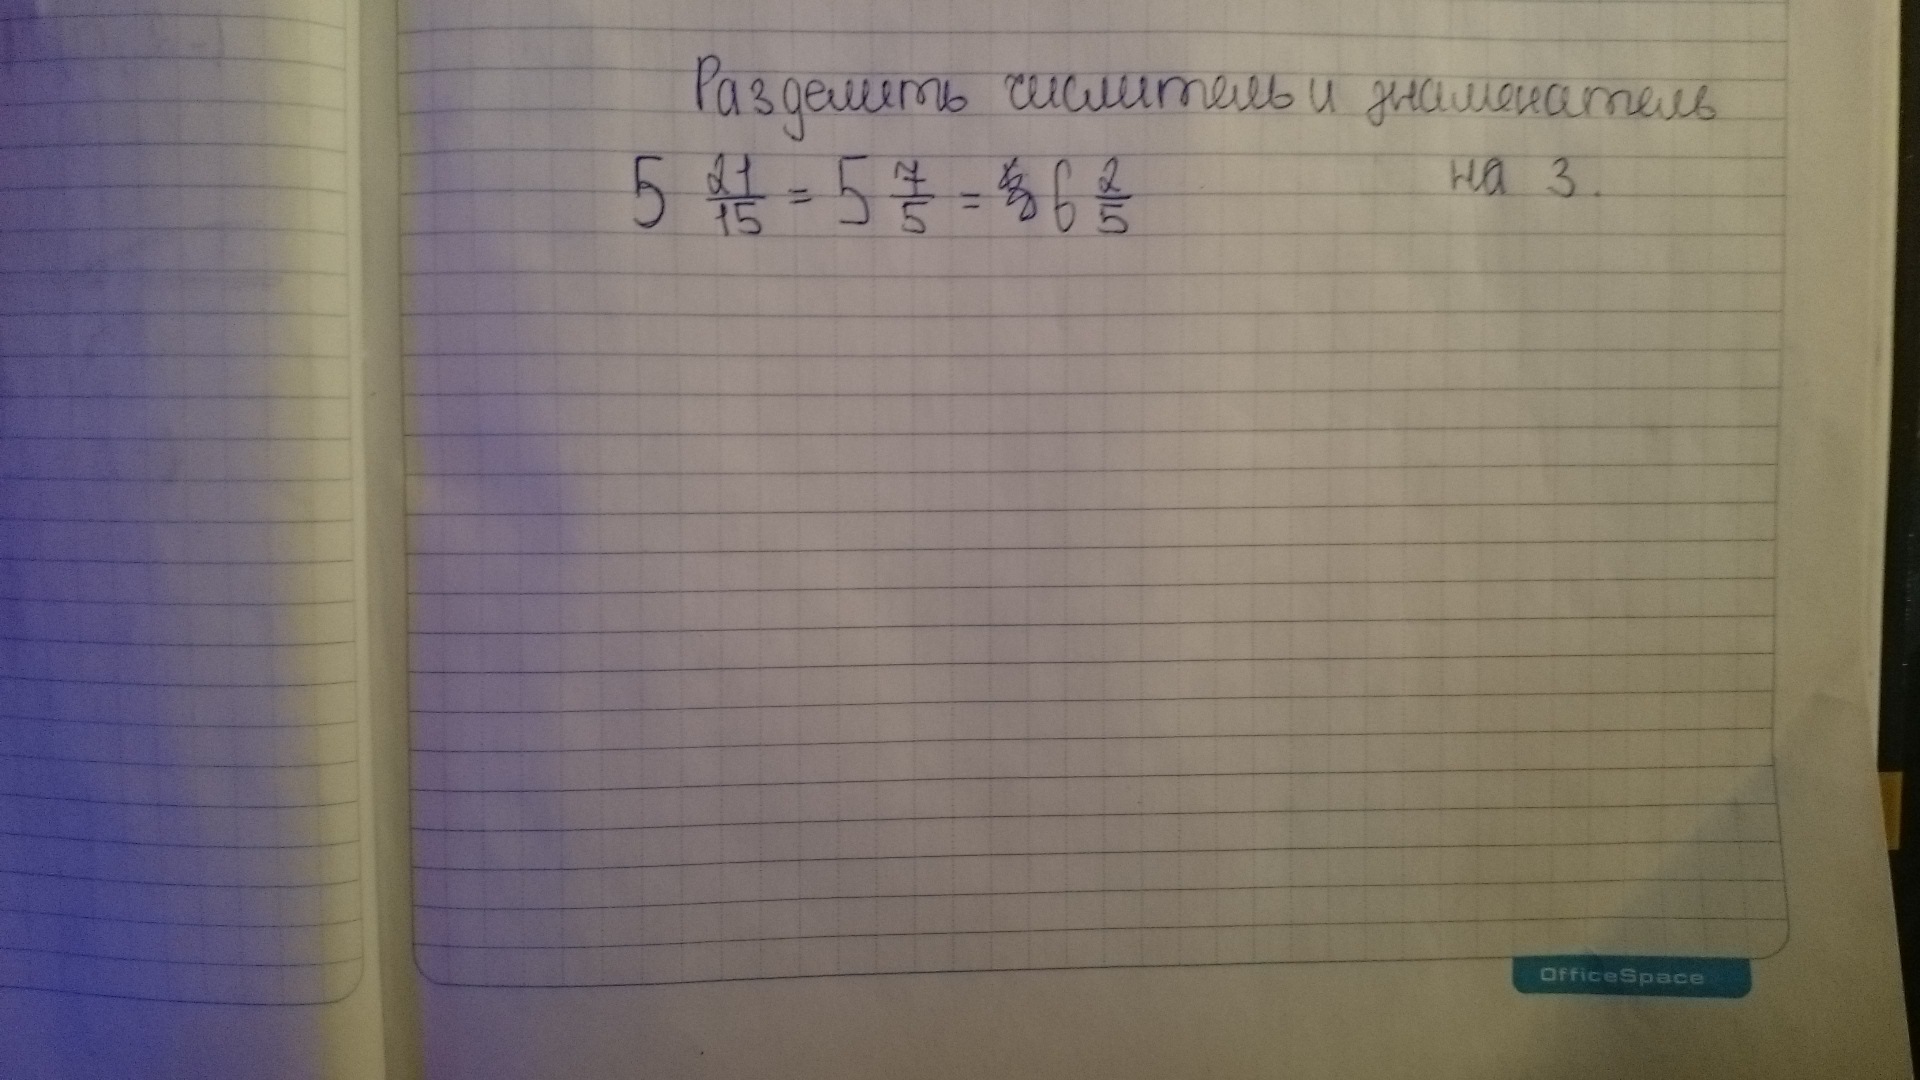 Разделить числитель и знаменатель
на 3.
5 21/15 = 5 7/5 = 6 2/5
OfficeSpace